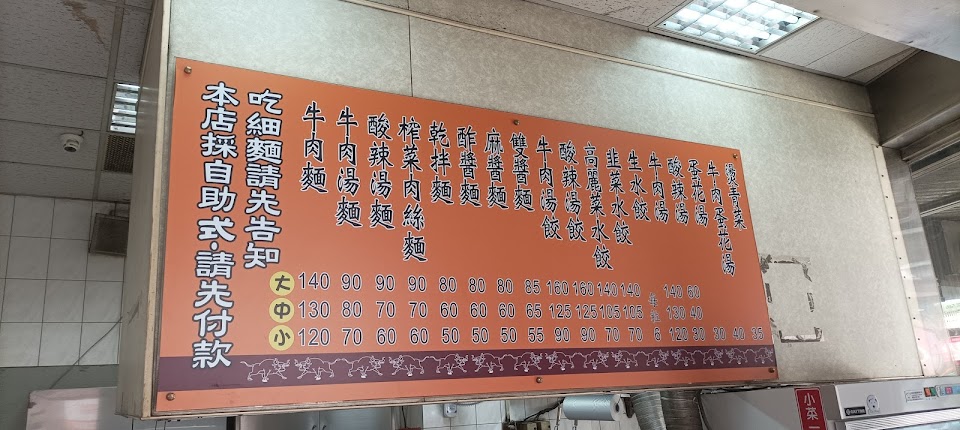 本店採自助式‧請先付款
吃細麵請先告知
牛肉麵
牛肉湯麵
酸辣湯麵
榨菜肉絲麵
乾拌麵
酢醬麵
麻醬麵
雙醬麵
牛肉湯餃
酸辣湯餃
高麗菜水餃
韮菜水餃
生水餃
牛肉湯
酸辣湯
蛋花湯
牛肉蛋花湯
燙青菜
大 140 90 90 90 80 80 80 85 160 160 140 140 140 60
中 130 80 70 70 60 60 60 65 125 125 105 105 每粒 130 40
小 120 70 60 60 50 50 50 55 90 90 70 70 6 120 30 30 40 35
小菜